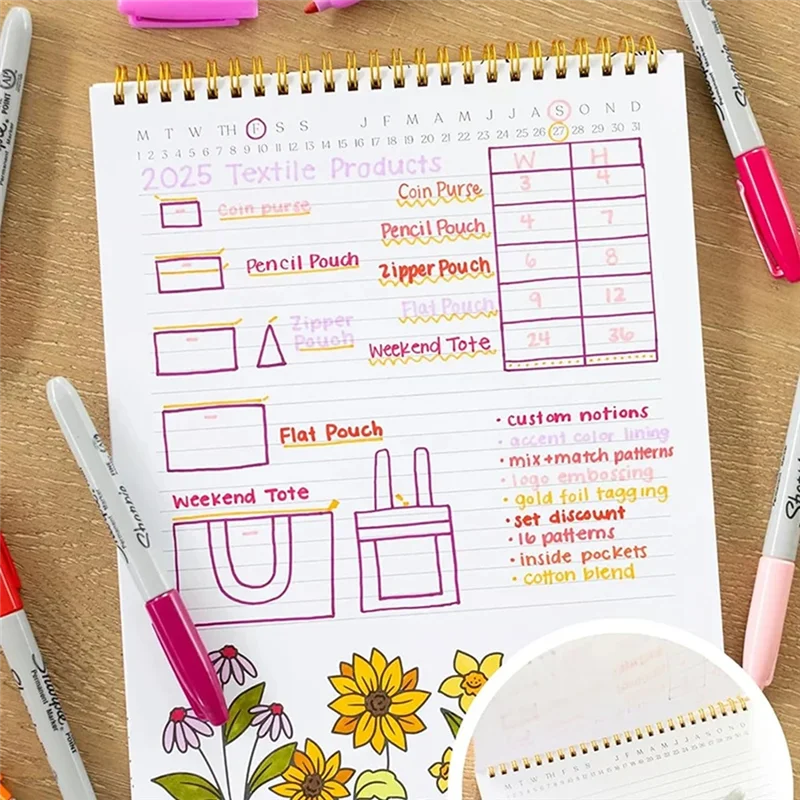 M T W TH F S S J F M A M J J A S O N D
1 2 3 4 5 6 7 8 9 10 11 12 13 14 15 16 17 18 19 20 21 22 23 24 25 26 27 28 29 30 31
2025 Textile Products
W H
Coin purse
Pencil Pouch
Zipper
Pouch
Flat Pouch
Weekend Tote
Coin Purse 3 4
Pencil Pouch 4 7
Zipper Pouch 6 8
Flat Pouch 9 12
Weekend Tote 24 36
• custom notions
• accent color lining
• mix+match patterns
• logo embossing
• gold foil tagging
• set discount
• 16 patterns
• inside pockets
• cotton blend
Sharpie
Sharpie
Permanent Marker
Sharpie
Sharpie
Permanent Marker
Sharpie
M T W TH F S S J F M A M J J A S O N D